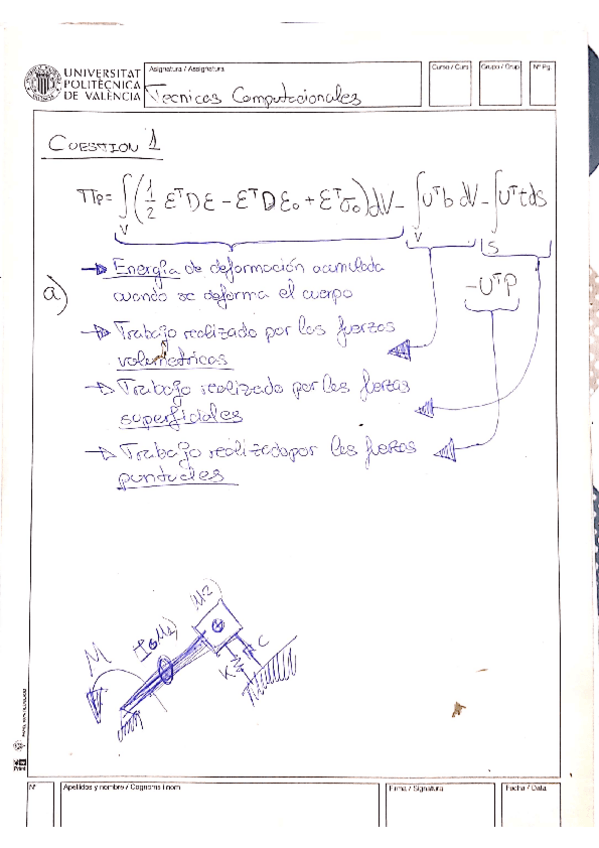 UNIVERSITAT
POLITÈCNICA
DE VALÈNCIA
Asignatura / Assignatura
Tecnicas Computacionales
Curso / Curs
Grupo / Grup
Nº Pg.
CUESTION 1
πp = ∫V (1/2 εᵀDε - εᵀDε₀ + εᵀσ₀) dV - ∫V uᵀb dV - ∫S uᵀt ds
- UᵀP
a)
→ Energía de deformación acumulada
cuando se deforma el cuerpo
→ Trabajo realizado por las fuerzas
volumetricas
→ Trabajo realizado por las fuerzas
superficiales
→ Trabajo realizado por las fuerzas
puntuales
M2)
M
K
C
Nº
Apellidos y nombre / Cognoms i nom
Firma / Signatura
Fecha / Data